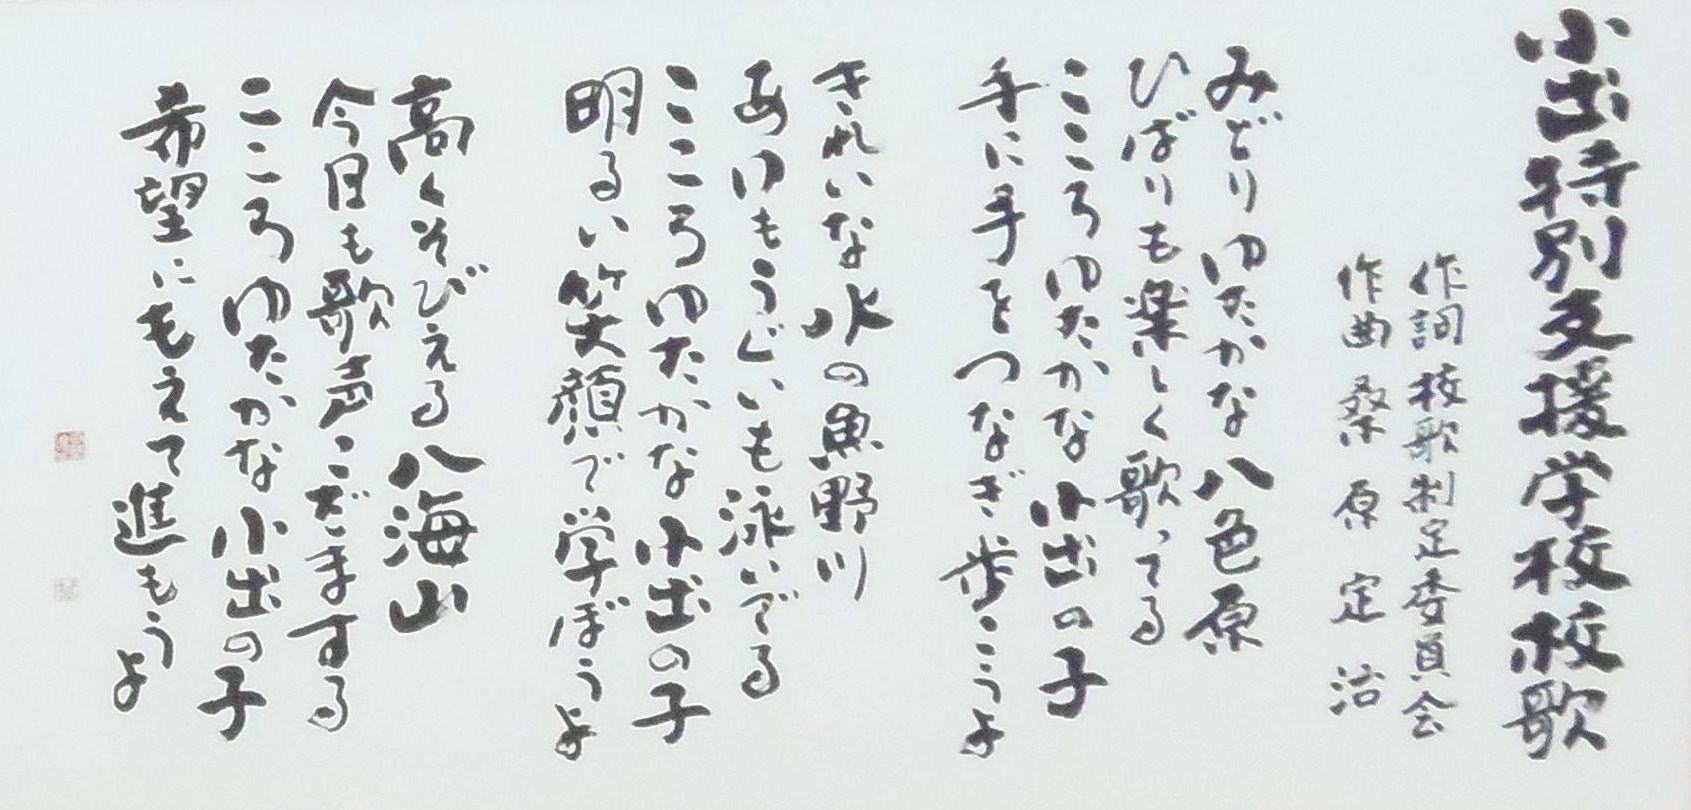 小出特別支援学校校歌
作詞 校歌制定委員会
作曲 桑原定治
みどりゆたかな八色原
ひばりも楽しく歌ってる
こころゆたかな小出の子
手に手をつなぎ歩こうよ
きれいな水の魚野川
あゆもうぐいも泳いでる
こころゆたかな小出の子
明るい笑顔で学ぼうよ
高くそびえる八海山
今日も歌声こだまする
こころゆたかな小出の子
希望にもえて進もうよ